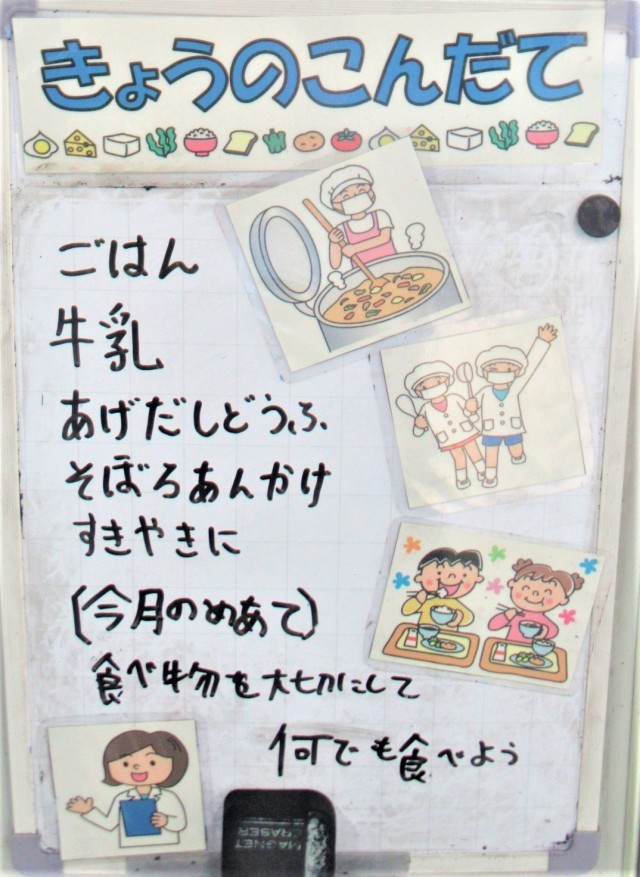 きょうのこんだて
ごはん
牛乳
あげだしどうふ
そぼろあんかけ
すきやきに
(今月のめあて)
食べ物を大切にして
何でも食べよう
MAGNET
ERASER